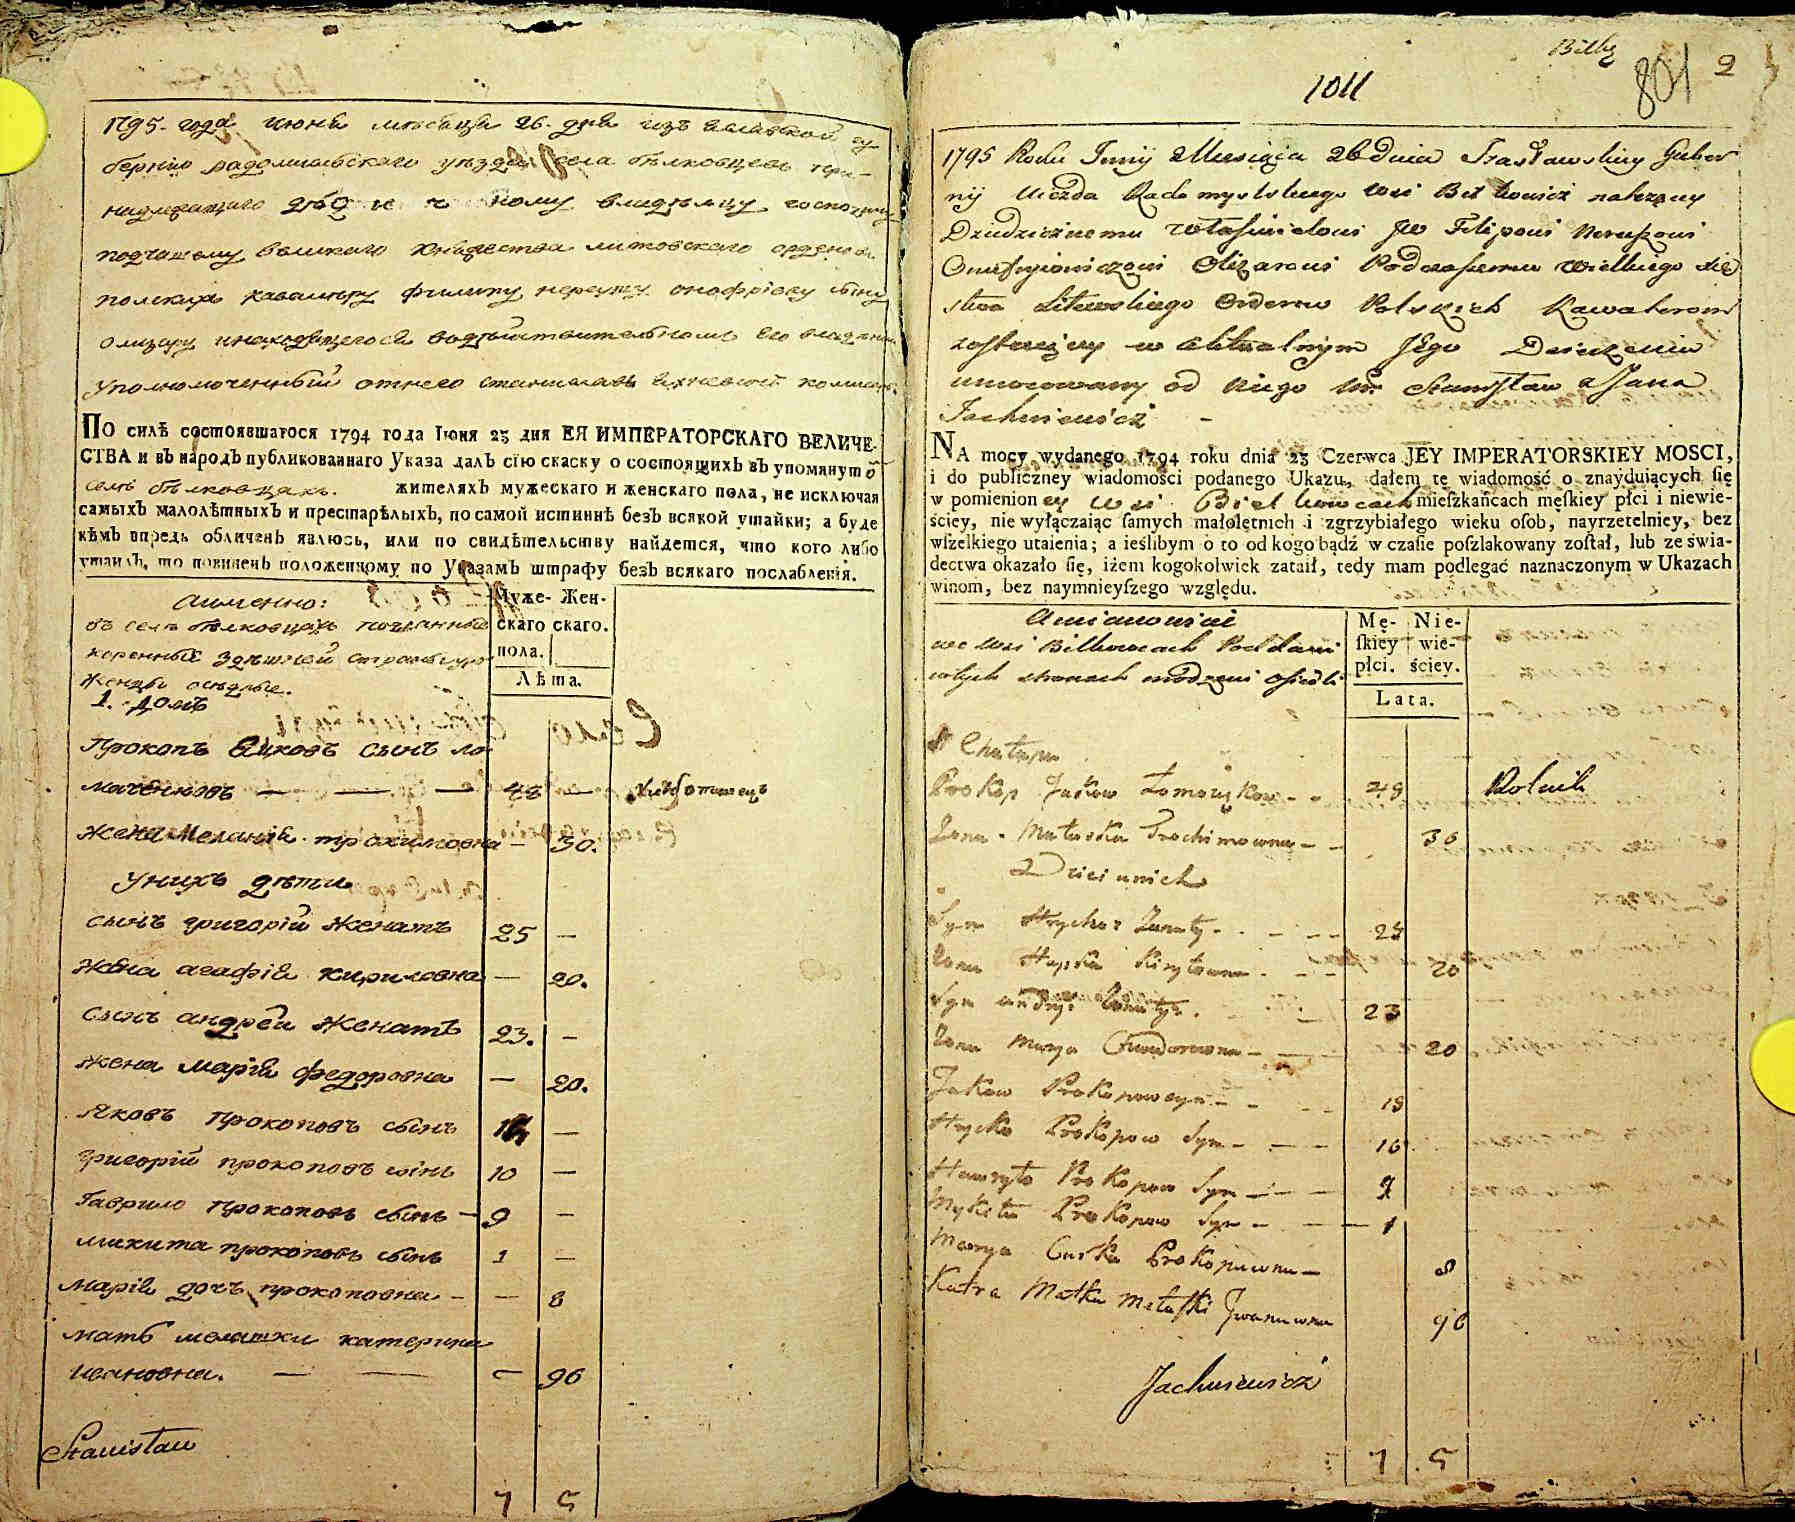 1795. года июня месяца 26. дня изъ
берніи радомышльскаго уезда села белковцевъ
надлежащаго владельцу
подчашему великаго княжества литовскаго орденовъ
полскихъ кавалеру филипу нереушу онофріеву сыну
олизару инаходящегося его владеніи
уполномоченный отнего станиславъ
По силѣ состоявшагося 1794 года Іюня 23 дня ЕЯ ИМПЕРАТОРСКАГО ВЕЛИЧЕ-
СТВА и въ народъ публикованнаго Указа далъ сїю скаску о состоящихъ въ упомянутомъ
селе белковцахъ. жителяхъ мужескаго и женскаго пола, не исключая
самыхъ малолѣтныхъ и престарѣлыхъ, по самой истиннѣ безъ всякой утайки; а буде
кѣмъ впредь обличенъ явлюсь, или по свидѣтельству найдется, что кого либо
утаилъ, то повиненъ положенному по Указамъ штрафу безъ всякаго послабленїя.
Аименно:
въ селе белковцахъ
коренные здешней стороны уро
женцы оседлые.
Муже- Жен-
скаго скаго.
пола.
Лѣта.
1. домъ
Прокопъ Яковъ сынъ ло
маченковъ — — — 48 —
жена Меланія трохимовна — 30.
унихъ дети
сынъ григорій женатъ 25 —
жена агафія кириловна — 20.
сынъ андрей женатъ 23. —
жена марія федоровна — 20.
Яковъ прокоповъ сынъ —
григорій прокоповъ сынъ 10 —
Гаврило прокоповъ сынъ — 9 —
микита прокоповъ сынъ 1 —
марія дочъ прокоповна — — 8
мать мелашки катерина
ивановна. — — — 96
Stanisław
7 5
Bilky
801 2
1011
1795 Roku Junij Miesiąca 26 Dnia Izasławskiey Guber
nij Uiezda Radomyslskiego wsi Bił kowicz należący
Dziedzicznemu włascicielowi Jw Filipowi Nereuszowi
Onufryiowiczowi Olizarowi Podczaszemu Wielkiego Xię
stwa Litewskiego Orderów Polskich Kawalerowi
zostaiący w aktualnym Jego Dzierzeniu
umocowany od niego Stanisław Jana
Jachniewicz —
NA mocy wydanego 1794 roku dnia 23 Czerwca JEY IMPERATORSKIEY MOSCI,
i do publiczney wiadomości podanego Ukazu, dałem tę wiadomość o znayduiących ſię
w pomienioney wsi Biel kowcach mieſzkańcach męſkiey płci i niewie-
ściey, nie wyłączaiąc ſamych małoletnich i zgrzybiałego wieku oſob, nayrzetelniey, bez
wſzelkiego utaienia; a ieślibym o to od kogo bądź w czaſie poſzlakowany zoſtał, lub ze świa-
dectwa okazało ſię, iżem kogokolwiek zataił, tedy mam podlegać naznaczonym w Ukazach
winom, bez naymnieyſzego względu.
Amianowicie
we wsi Bilkowcach Poddani
wtych stronach osiedli
Mę- Nie-
ſkiey wie-
płci. ściey.
Lata.
Chałupa
Prokop Jaków Łomaczkow - - 48 Rolnik
Zona - Małaszka Trochimowna - - 30
Dzieci unich
Syn Hrychor Zonaty - - - - 25
Zona Hapka Kiryłowna - - - 20
Syn andrij Zonaty - - 23
Zona Marya Chwedorowna - - 20
Jakow Prokopow syn - - - -
Hrycko Prokopow Syn - - - 10
Hawryło Prokopow Syn - - - 9
Mykita Prokopow Syn - - - 1
Marya Curka Prokopowna - 8
Katra Matka Małaſzki Jwanowna 96
Jachniewicz
7 5